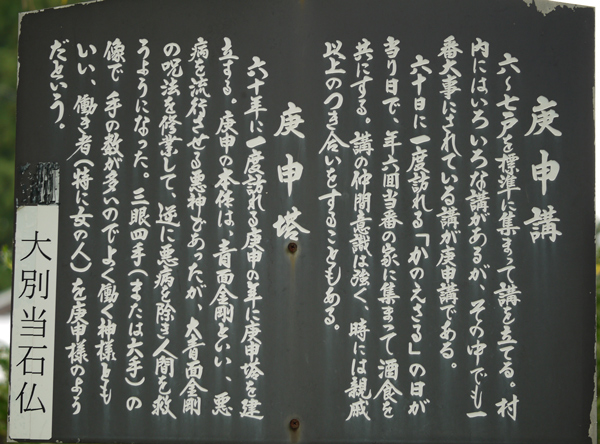 庚申講
六〜七戸を標準に集まって講を立てる。村
内にはいろいろな講があるが、その中でも一
番大事にされている講が庚申講である。
六十日に一度訪れる「かのえさる」の日が
当り日で、年六回当番の家に集まって酒食を
共にする。講の仲間意識は強く、時には親戚
以上のつき合いをすることもある。
庚申塔
六十年に一度訪れる庚申の年に庚申塔を建
立する。庚申の本体は、青面金剛といい、悪
病を流行させる悪神であったが、大青面金剛
の呪法を修業して、逆に悪病を除き人間を救
うようになった。三眼四手(または六手)の
像で、手の数が多いのでよく働く神様とも
いい、働き者(特に女の人)を庚申様のよう
だという。
大別当石仏